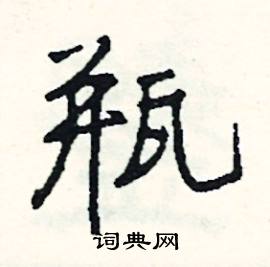 瓶
词典网